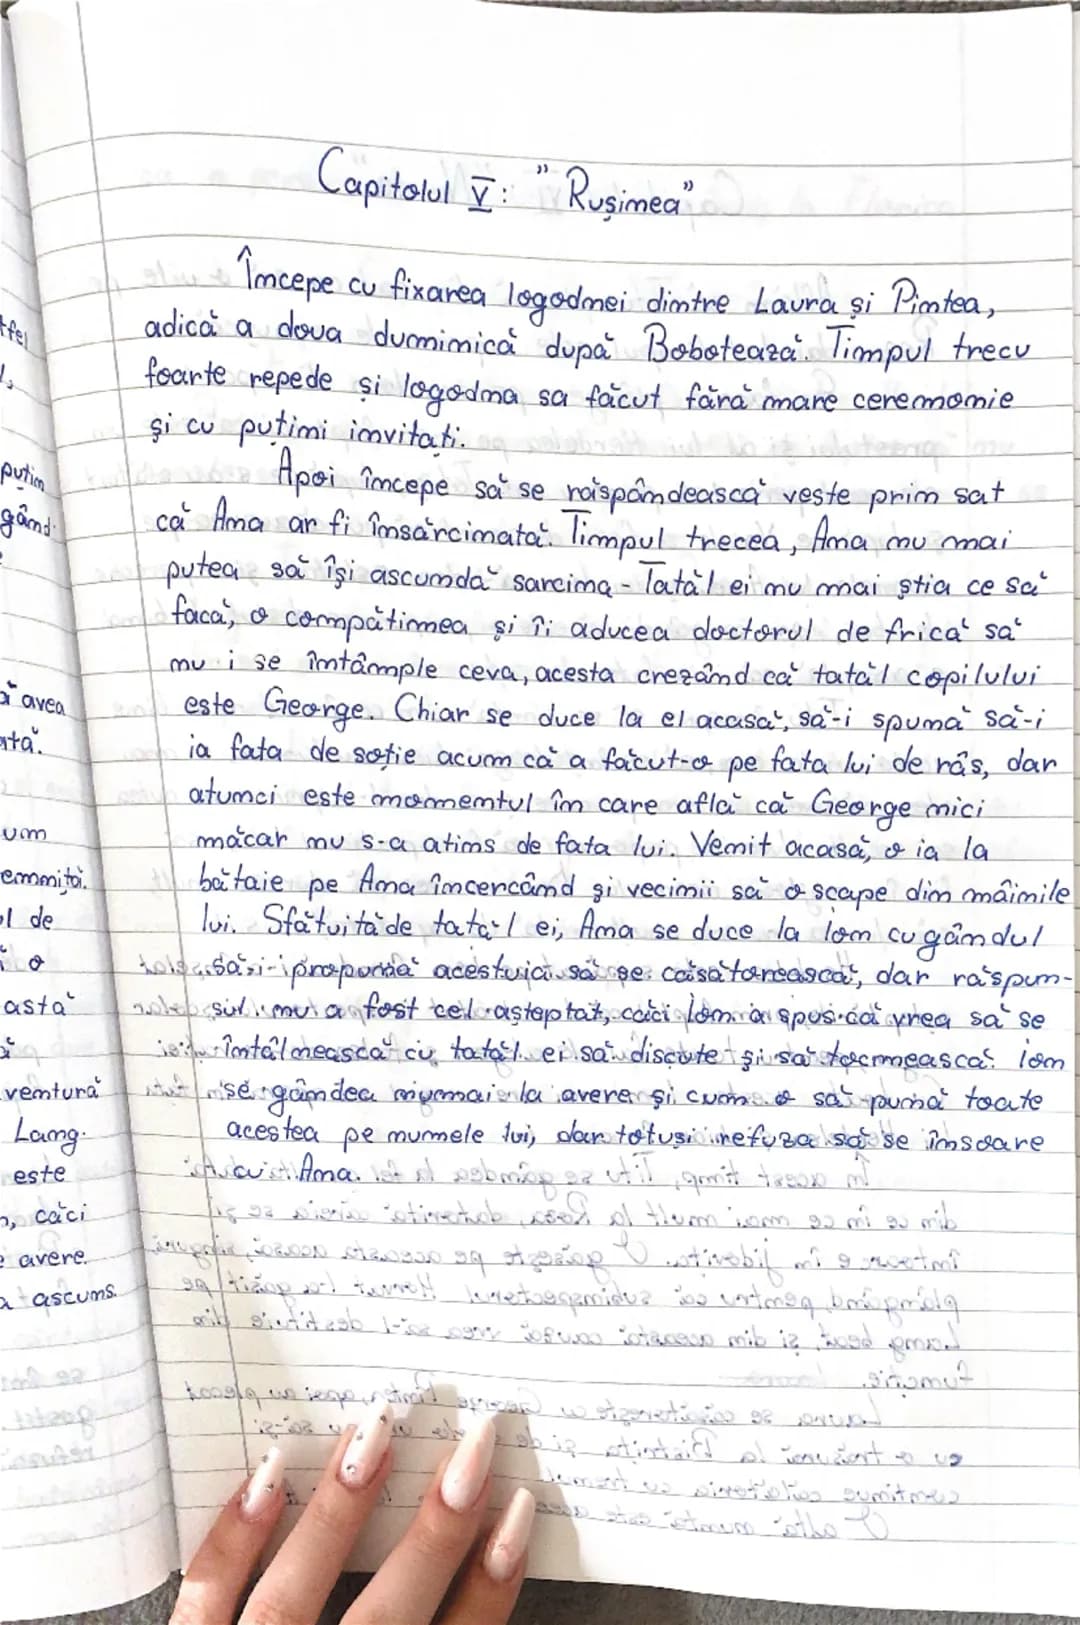 Capitolul V: "Rușinea"
Începe cu fixarea logodnei dintre Laura și Pintea,
adică a doua duminică după Bobotează. Timpul trecu
foarte repede și logodna sa făcut fără mare ceremonie
și cu puțini invitați.
Apoi începe să se răspândească veste prin sat
că Ana ar fi însărcinată. Timpul trecea, Ana nu mai
putea să își ascundă sarcina - Tatăl ei nu mai știa ce să
facă, o compătimea și îi aducea doctorul de frică să
nu i se întâmple ceva, acesta crezând că tatăl copilului
este George. Chiar se duce la el acasă, să-i spună să-i
ia fata de soție acum că a făcut-o pe fata lui de râs, dar
atunci este momentul în care află că George nici
măcar nu s-a atins de fata lui. Venit acasă, o ia la
bătaie pe Ana încercând și vecinii să o scape din mâinile
lui. Sfătuită de tatăl ei, Ana se duce la Ion cu gândul
să-i propună acestuia să se căsătorească, dar răspun-
sul nu a fost cel așteptat, căci Ion a spus că vrea să se
întâlnească cu tatăl ei să discute și să tocmească. Ion
se gândea numai la avere și cum o să pună toate
acestea pe numele lui, dar totuși refuza să se însoare
cu Ana.
tfel
puțin
gând
ă avea
ată.
um
l de
i o
asta
ventură
Lang.
este
, căci
avere.
a ascuns.